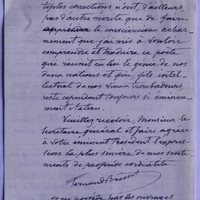 tiples corrections n'ont, d'ailleurs,
pas d'autre mérite que de faire
apprécier le consciencieux achar-
nement que j'ai mis à vouloir
comprendre et traduire ce poète
qui réunit en lui le génie de nos
deux nations et qui, fils intel-
lectuel de nos vieux troubadours
reste cependant toujours si éminem-
ment italien.
Veuillez recevoir, Monsieur le
Secrétaire général et faire agréer
à votre éminent Président l'expres-
sion la plus sincère de mes senti-
ments de profonde cordialité.
Fernand Brisset
les ouvrages